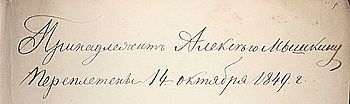 Принадлежитъ Алексѣю Мышкину
Переплетены 14 октября 1849 г.